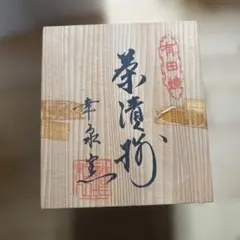 有田焼
茶漬揃
幸泉窯